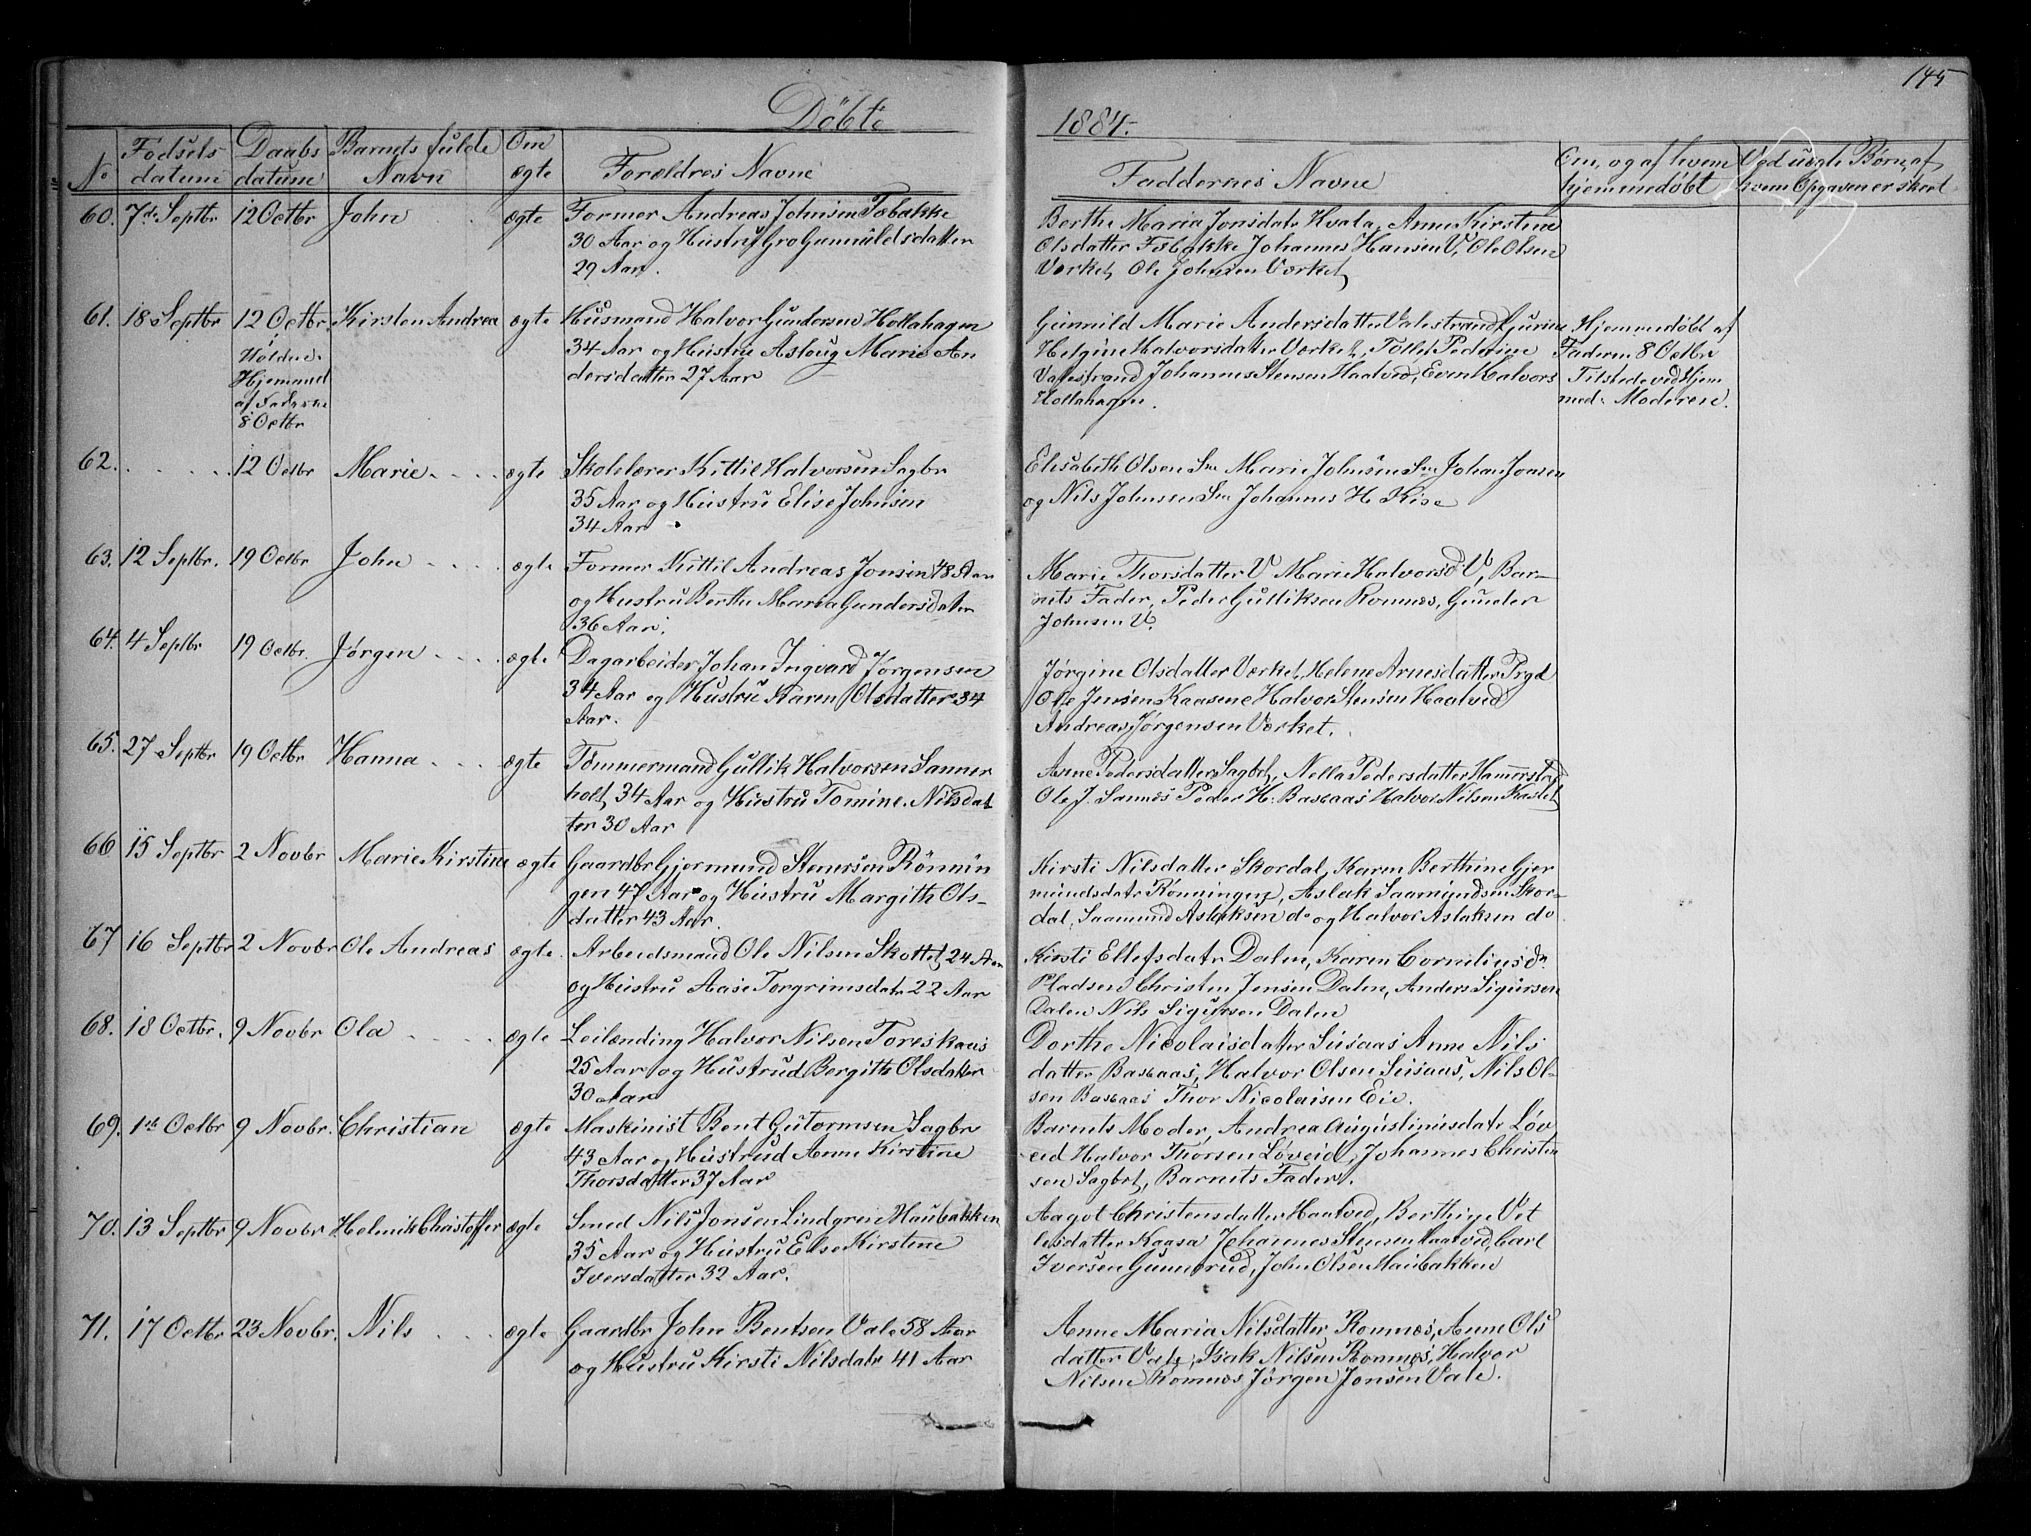 145
Döbte
1884.
No
Fødsels-
datum
Daabs
datum
Barnets fulde
Navn
Om
ægte
Forældres Navne
Faddernes Navne
Om, og af hvem
hjemmedøbt
Ved uægte Børn, af
hvem Opgaven er skeet
60. 7de Septbr 12 Octbr John ægte Former Andreas Johnsen Tæbakke
30 Aar og Hustru Gro Gunnuldsdatter
29 Aar.
Berthe Maria Jonsdatr Hvala, Anne Kirstine
Olsdatter Tæbakke Johannes Hansen V, Ole Olsen
Værket, Ole Johnsen Værket,
61. 18 Septbr 12 Octbr Kirsten Andrea ægte Husmand Halvor Gundersen Hollahagen
34 Aar og Hustru Asloug Marie An
dersdatter 27 Aar
Hjemmed
af Faderen
8 Octbr
Gunnild Marie Andersdatter Valestrand, Gurine
Helgine Halvorsdatter Værket, Tollef Pedersen
Valestrand Johannes Stensen Haatved, Even Halvors
Hollahagen.
Hjemmedöbt af
Faderen 8 Octbr
Tilstede ved Hjem
med: Moderen.
62. 12 Octbr Marie ægte Skolelærer Kittil Halvorsen Sagbr
35 Aar og Hustru Elise Johnsen
34 Aar
Elisabeth Olsen Sn Marie Johnsen Sn Johan Jonsen
og Nils Johnsen Sn Johannes H. Kise
63. 12 Septbr. 19 Octbr John ægte Former Kittil Andreas Jonsen 48 Aar
og Hustru Berthe Maria Gundersdatter
36 Aar.
Marie Thorsdatter V Marie Halvorsd V, Bar-
nets Fader, Peder Gulliksen Romnæs, Gunder
Johnsen V.
64. 4 Septbr 19 Octbr. Jørgen ægte Dagarbeider Johan Ingvard Jørgensen
34 Aar og Hustru Karen Olsdatter 34
Aar.
Jørgine Olsdatter Værket, Helene Arnesdatter Prgd
Ole Jensen Kaasene Halvor Stensen Haatved
Andreas Jørgensen Værket.
65. 27 Septbr 19 Octbr Hanna ægte Tömmermand Gullik Halvorsen Sanner
holt, 34 Aar og Hustru Tomine Nilsdat
ter 30 Aar
Anne Pedersdatter Sagbrt, Nella Pedersdatter
Ole J. Sannes Peder H. Basaas Halvor Nilsen Kastet
66 15 Septbr 2 Novbr Marie Kirstine ægte Gaardbr Gjermund Stenersen Rönnin
gen 47 Aar og Hustru Margith Ols-
datter 43 Aar.
Kirsti Nilsdatter Skordal, Karen Berthine Gjer
mundsdatr Rönningen, Aslak Saamundsen Skor-
dal, Saamund Aslaksen do og Halvor Aslaksen do
67 16 Septbr 2 Novbr Ole Andreas ægte. Arbeidsmand Ole Nilsen Skottet, 24 Aar
og Hustru Aase Torgrimsdatr 22 Aar
Kirsti Ellefsdatr Dalen, Karen Corneliusdr.
Pladsen Christen Jensen Dalen, Anders Sigursen
Dalen Nils Sigursen Dalen
68. 18 Octbr. 9 Novbr Ola ægte Leilænding Halvor Nilsen Toreskaas
25 Aar og Hustrud Bergith Olsdatter
30 Aar
Dorthe Nicolaisdatter Suisaas Anne Nils
datter Basaas, Halvor Olsen Suisaas, Nils Ol-
sen Basaas Thor Nicolaisen Eie.
69. 1ste Octbr 9 Novbr. Christian ægte Maskinist Bent Gutormsen Sagbr
43 Aar og Hustrud Anne Kirstine
Thorsdatter 37 Aar
Barnets Moder, Andrea Augustinusdatr Løv
eid Halvor Thorsen Løveid, Johannes Christen
sen Sagbrt, Barnets Fader.
70. 13 Septbr 9 Novbr Helmik Christoffer ægte Smed Nils Jonsen Lindgren Haubakken
35 Aar og Hustru Else Kirstine
Iversdatter 32 Aar.
Aagot Christensdatter Haatved, Berthine Vet
lesdatter Kaasa Johannes Stensen Haatved, Carl
Iversen Gunnerud, John Olsen Haubakken
71. 17 Octbr 23 Novbr. Nils ægte Gaardbr John Bentsen Vale 58 Aar
og Hustru Kirsti Nilsdatr 41 Aar
Anne Maria Nilsdatter Romnæs, Anne Ols
datter Vale, Isak Nilsen Romnæs, Halvor
Nilsen Romnæs Jørgen Jonsen Vale.